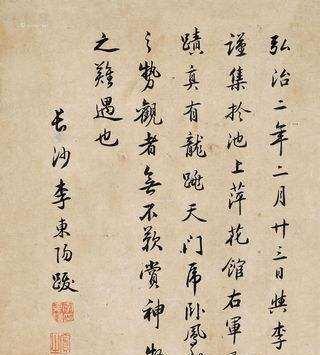 弘治二年二月廿三日與李
謹集於池上萍花館右軍
蹟真有龍跳天門虎臥鳳
之勢觀者無不歎賞神物
之難遇也
長沙李東陽跋